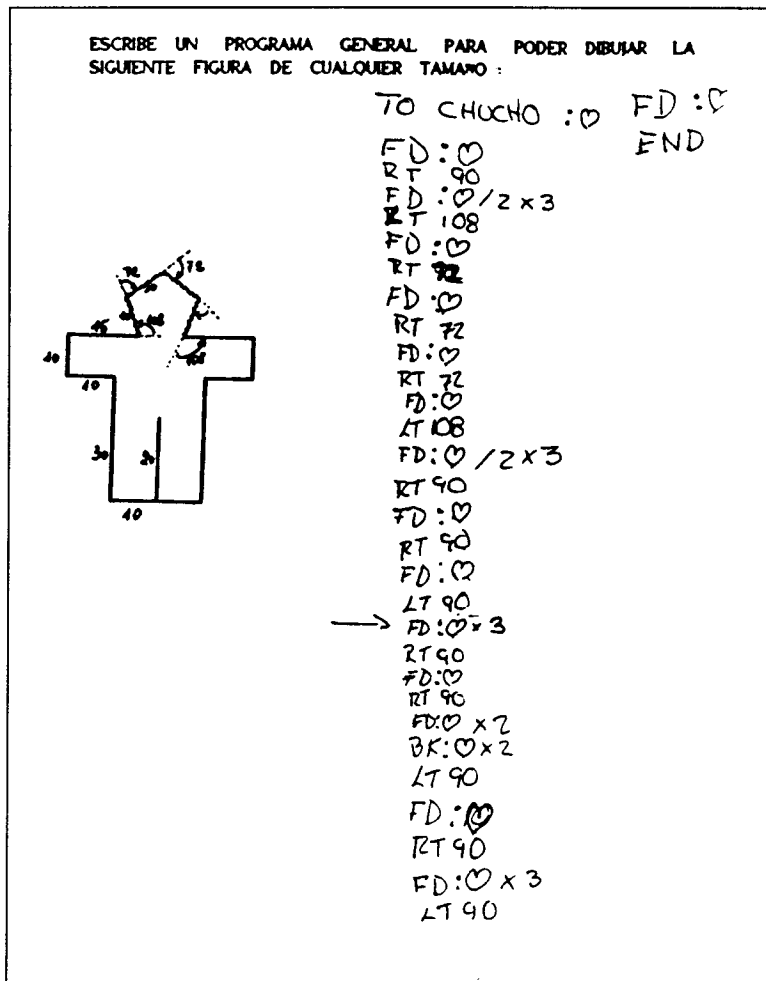 ESCRIBE UN PROGRAMA GENERAL PARA PODER DIBUJAR LA
SIGUIENTE FIGURA DE CUALQUIER TAMAÑO :
TO CHUCHO :♡
FD :♡
RT 90
FD :♡/2 x 3
RT 108
FD :♡
RT 72
FD :♡
RT 72
FD :♡
RT 72
FD :♡
LT 108
FD :♡ /2 x 3
RT 90
FD :♡
RT 90
FD :♡
LT 90
→ FD :♡ x 3
RT 90
FD :♡
RT 90
FD :♡ x 2
BK :♡ x 2
LT 90
FD :♡
RT 90
FD :♡ x 3
LT 90
FD :♡
END
72
72
10
10
108
15
108
10
10
30
20
10